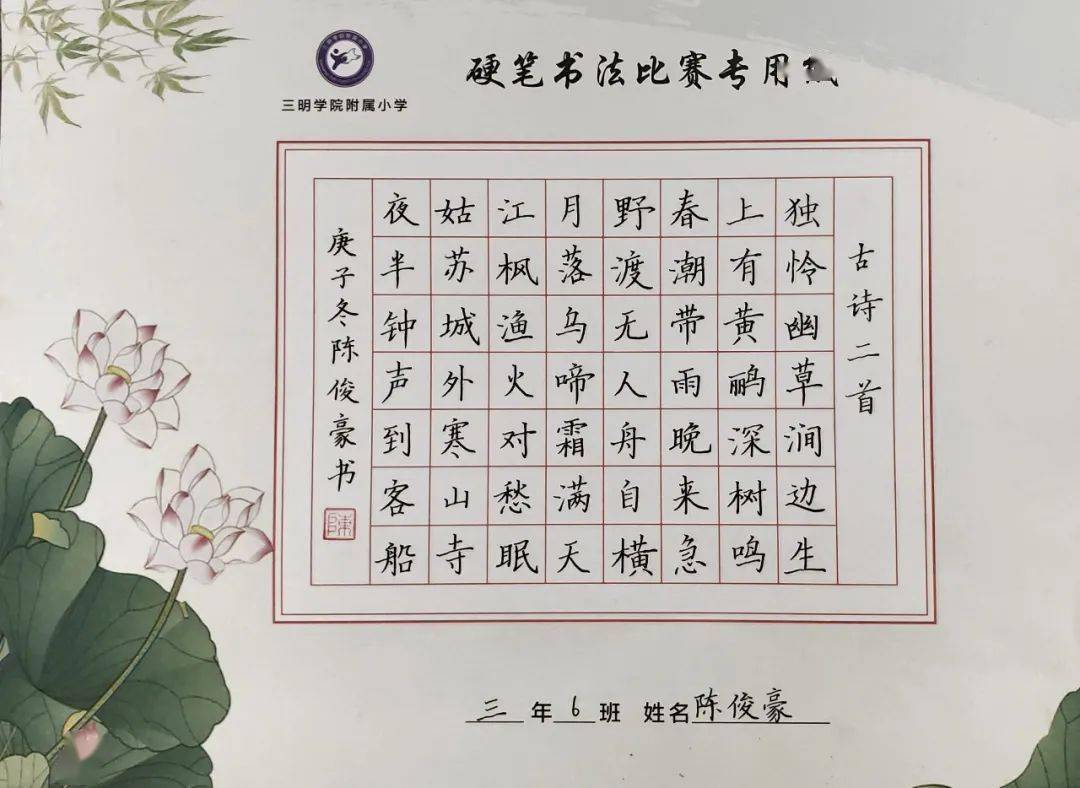 三明学院附属小学
硬笔书法比赛专用
古诗二首
独怜幽草涧边生
上有黄鹂深树鸣
春潮带雨晚来急
野渡无人舟自横
月落乌啼霜满天
江枫渔火对愁眠
姑苏城外寒山寺
夜半钟声到客船
庚子冬陈俊豪书
陳
三年6班 姓名陈俊豪